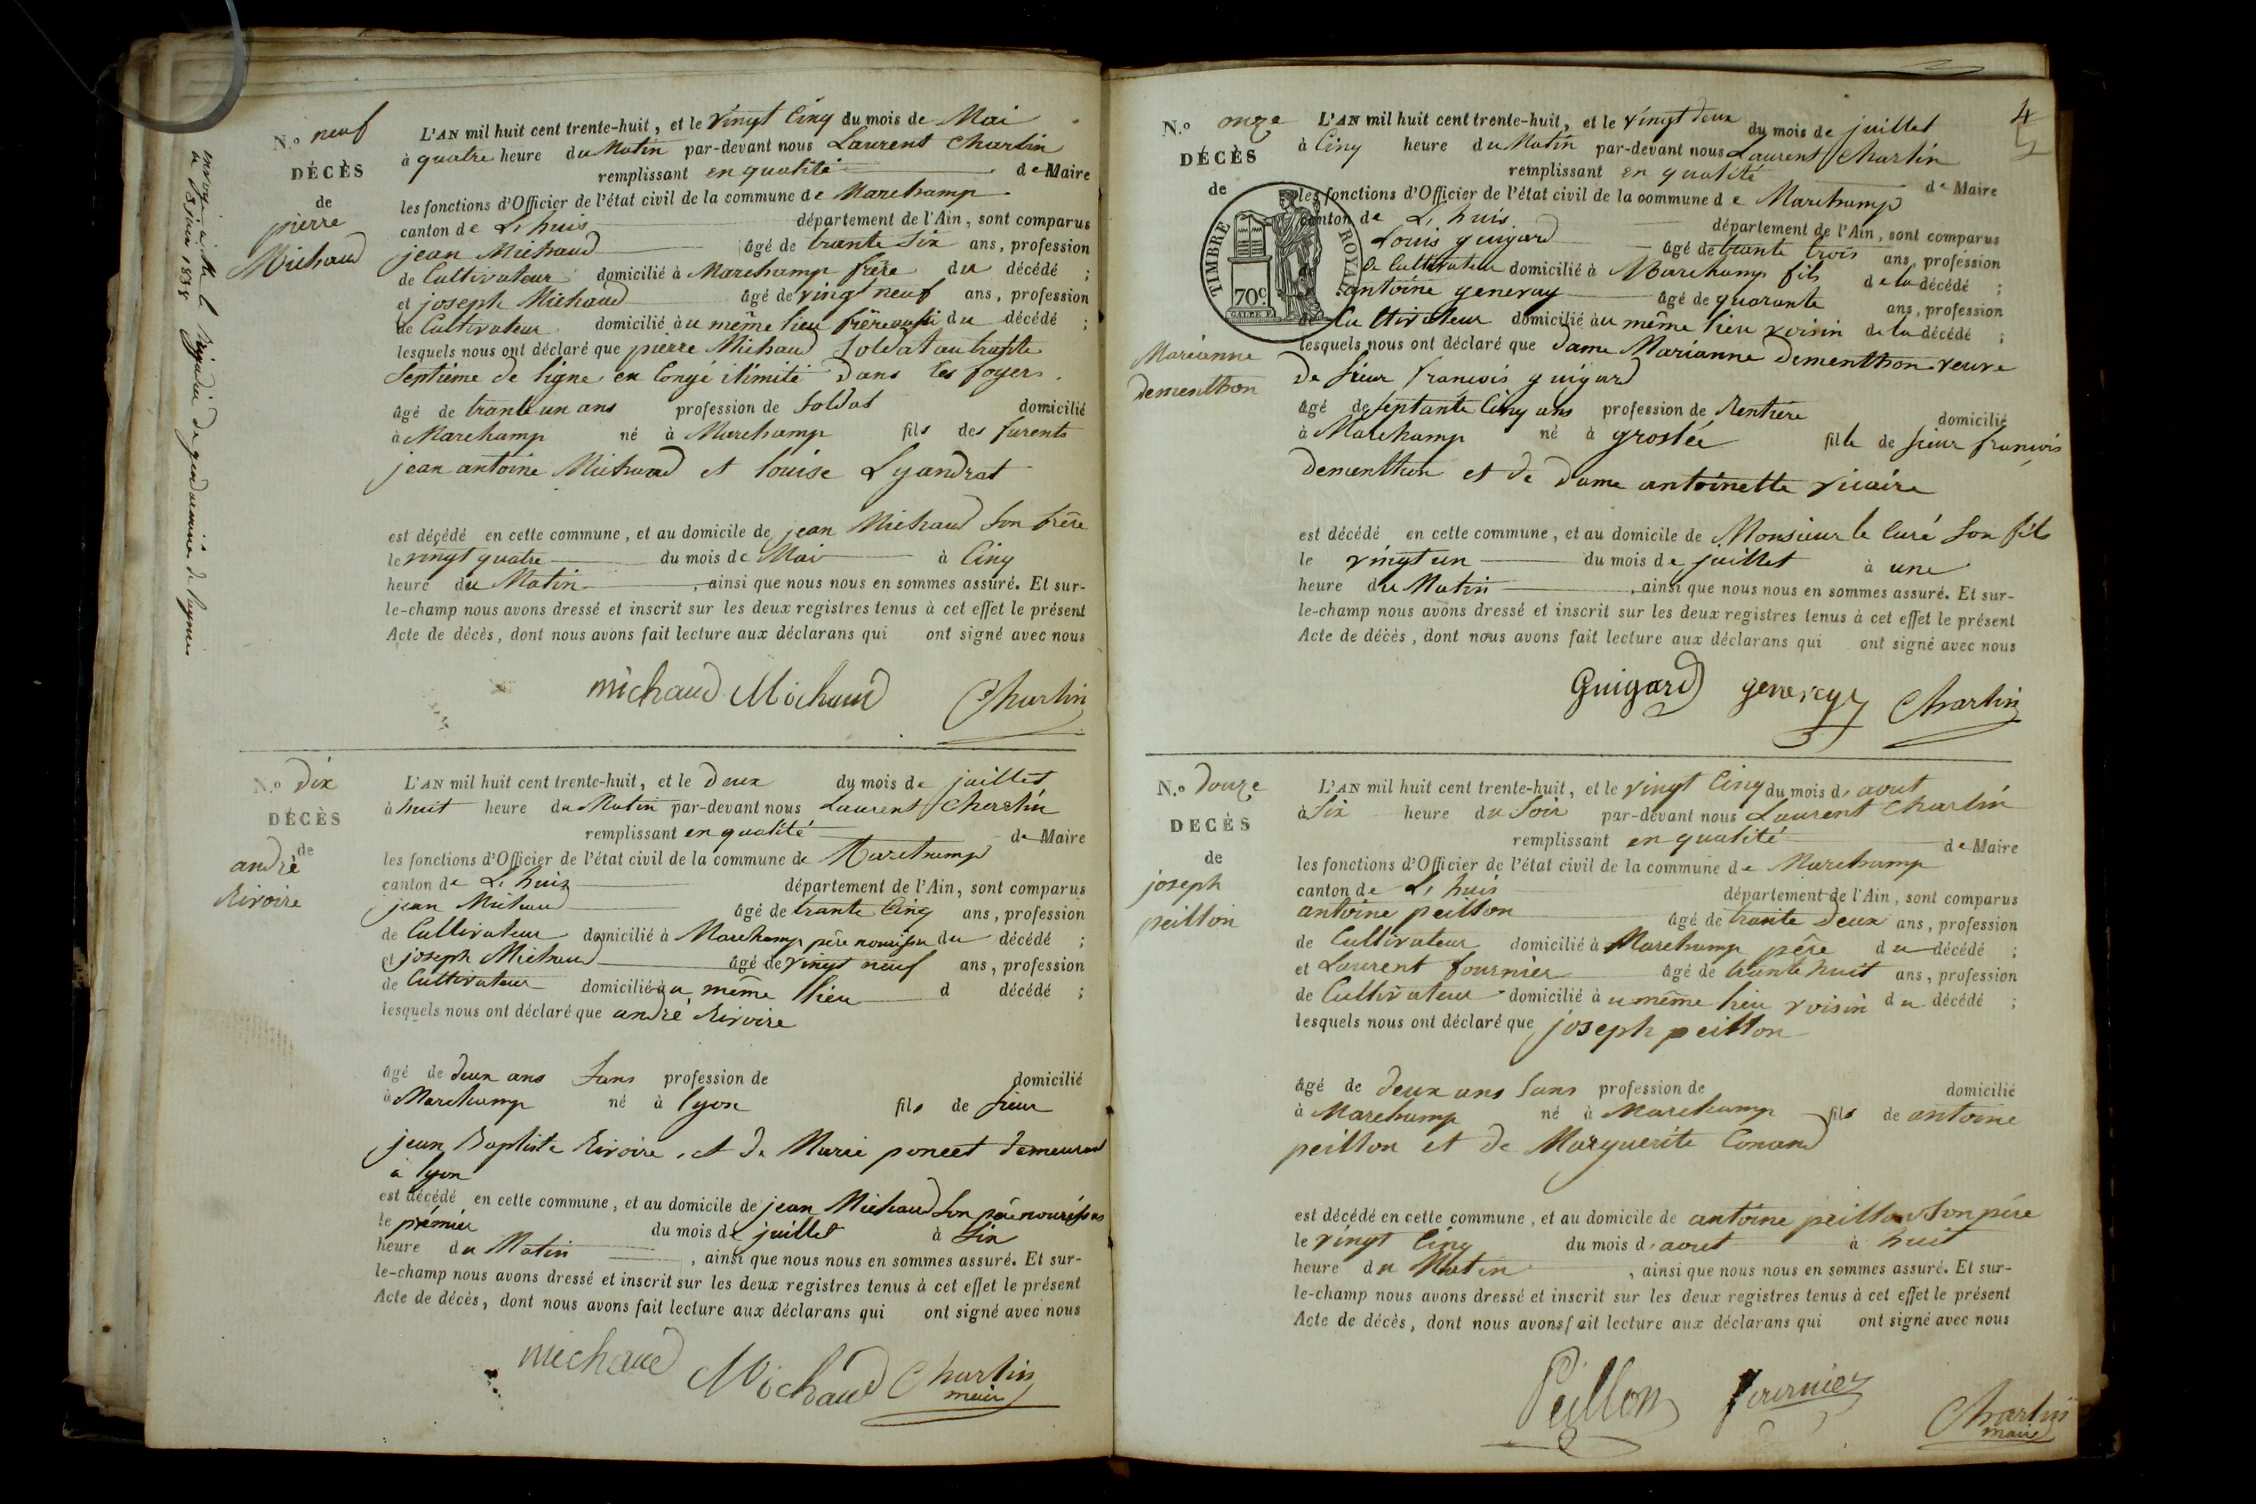 N.o neuf
DÉCÈS
de
pierre
Michaud
L'AN mil huit cent trente-huit, et le vingt Cinq du mois de Mai
à quatre heure du Matin par-devant nous Laurent Charlin
remplissant en qualité de Maire
les fonctions d'Officier de l'état civil de la commune de Marchamp
canton de L'huis département de l'Ain, sont comparus
jean Michaud âgé de trante Six ans, profession
de Cultivateur domicilié à Marchamp frère du décédé ;
et joseph Michaud âgé de vingt neuf ans, profession
de Cultivateur domicilié au même lieu frère aussi du décédé ;
lesquels nous ont déclaré que pierre Michaud Soldat au trante
Septième de ligne en Congé ilimité dans les foyers.
âgé de trante un ans profession de Soldat domicilié
à Marchamp né à Marchamp fils des furents
jean antoine Michaud et louise Lyandrat
est décédé en cette commune, et au domicile de jean Michaud Son frère
le vingt quatre du mois de Mai à Cinq
heure du Matin, ainsi que nous nous en sommes assuré. Et sur-
le-champ nous avons dressé et inscrit sur les deux registres tenus à cet effet le présent
Acte de décès, dont nous avons fait lecture aux déclarans qui ont signé avec nous
michaud Michaud Charlin
N.o dix
DÉCÈS
de
andré
Rivoire
L'AN mil huit cent trente-huit, et le deux du mois de juillet
à huit heure du Matin par-devant nous Laurent Charlin
remplissant en qualité de Maire
les fonctions d'Officier de l'état civil de la commune de Marchamp
canton de L'huis département de l'Ain, sont comparus
jean Michaud âgé de trante Cinq ans, profession
de Cultivateur domicilié à Marchamp père nourissu du décédé ;
et joseph Michaud âgé de vingt neuf ans, profession
de Cultivateur domicilié au même lieu d décédé ;
lesquels nous ont déclaré que andré Rivoire
âgé de deux ans Sans profession de domicilié
à Marchamp né à lyon fils de Sieur
jean Baptiste Rivoire, et de Marie poncet demeurant
a lyon
est décédé en cette commune, et au domicile de jean Michaud Son père
le prémier du mois de juillet à Six
heure du Matin, ainsi que nous nous en sommes assuré. Et sur-
le-champ nous avons dressé et inscrit sur les deux registres tenus à cet effet le présent
Acte de décès, dont nous avons fait lecture aux déclarans qui ont signé avec nous
michaud Michaud Charlin
maire
4
N.o onze
DÉCÈS
de
TIMBRE ROYAL
70c.
Marianne
dementhon
L'AN mil huit cent trente-huit, et le vingt deux du mois de juillet
à Cinq heure du Matin par-devant nous Laurent Charlin
remplissant en qualité de Maire
les fonctions d'Officier de l'état civil de la commune de Marchamp
canton de L'huis département de l'Ain, sont comparus
Louis guigard âgé de trante trois ans, profession
de Cultivateur domicilié à Marchamp fils de la décédé ;
antoine genevay âgé de quarante ans, profession
de Cultivateur domicilié au même lieu voisin de la décédé ;
lesquels nous ont déclaré que dame Marianne dementhon veuve
de Sieur francois guigard
âgé de Septante Cinq ans profession de Rentière domicilié
à Marchamp né à groslée fille de Sieur francois
dementhon et de dame antoinette vicaire
est décédé en cette commune, et au domicile de Monsieur le Curé Son fils
le vingt un du mois de juillet à une
heure du Matin, ainsi que nous nous en sommes assuré. Et sur-
le-champ nous avons dressé et inscrit sur les deux registres tenus à cet effet le présent
Acte de décès, dont nous avons fait lecture aux déclarans qui ont signé avec nous
Guigard genevay Charlin
N.o douze
DECÈS
de
joseph
peillon
L'AN mil huit cent trente-huit, et le vingt Cinq du mois d'aout
à Six heure du Soir par-devant nous Laurent Charlin
remplissant en qualité de Maire
les fonctions d'Officier de l'état civil de la commune de Marchamp
canton de L'huis département de l'Ain, sont comparus
antoine peillon âgé de trante deux ans, profession
de Cultivateur domicilié à Marchamp père du décédé ;
et Laurent fournier âgé de trante huit ans, profession
de Cultivateur domicilié au même lieu voisin du décédé ;
lesquels nous ont déclaré que joseph peillon
âgé de deux ans Sans profession de domicilié
à Marchamp né à Marchamp fils de antoine
peillon et de Marguerite Conand
est décédé en cette commune, et au domicile de antoine peillon Son père
le vingt Cinq du mois d'aout à huit
heure du Matin, ainsi que nous nous en sommes assuré. Et sur-
le-champ nous avons dressé et inscrit sur les deux registres tenus à cet effet le présent
Acte de décès, dont nous avons fait lecture aux déclarans qui ont signé avec nous
Peillon fournier Charlin
maire